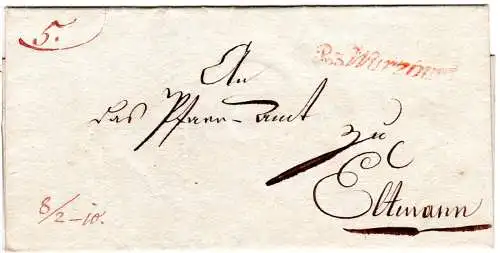 5.
R.3.Würzburg
An
das Pfarr-amt
zu
Eltmann
8/2-10.